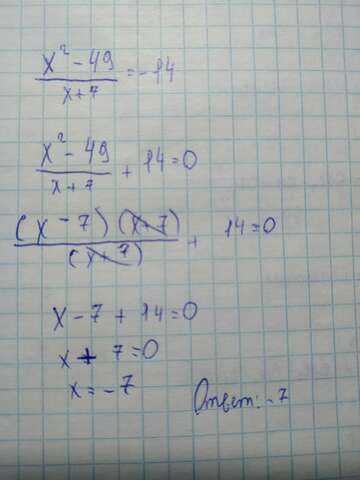 x² - 49 / x + 7 = -14
x² - 49 / x + 7 + 14 = 0
(x - 7) (x + 7) / (x + 7) + 14 = 0
x - 7 + 14 = 0
x + 7 = 0
x = -7
Ответ: -7